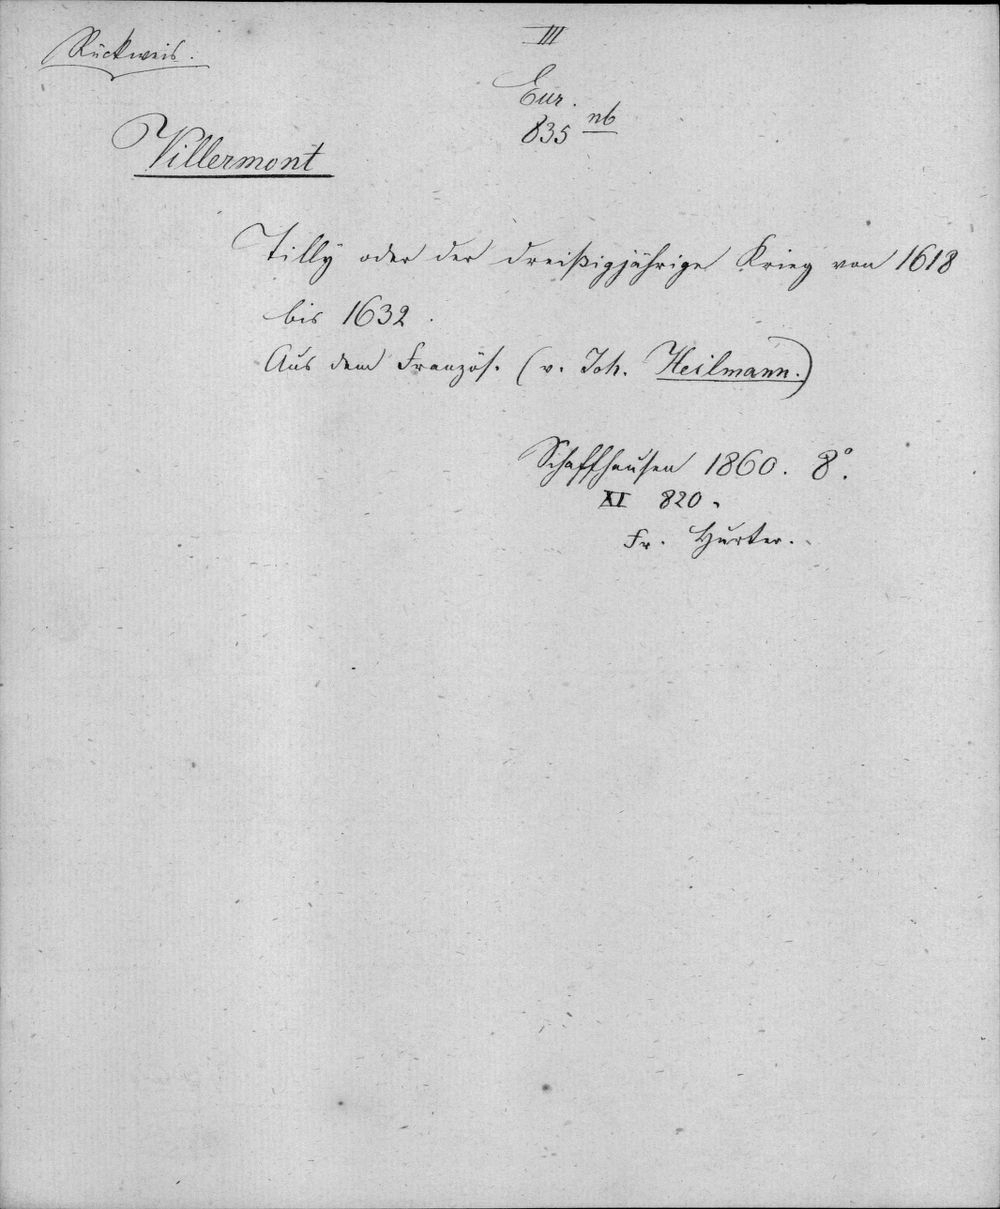 Rückweis.
III
Eur.
835 nb
Villermont
Tilly oder der dreißigjährige Krieg von 1618
bis 1632.
Aus dem Französ. (v. Joh. Heilmann.)
Schaffhausen 1860. 8°.
XI 820.
Fr. Hurter.